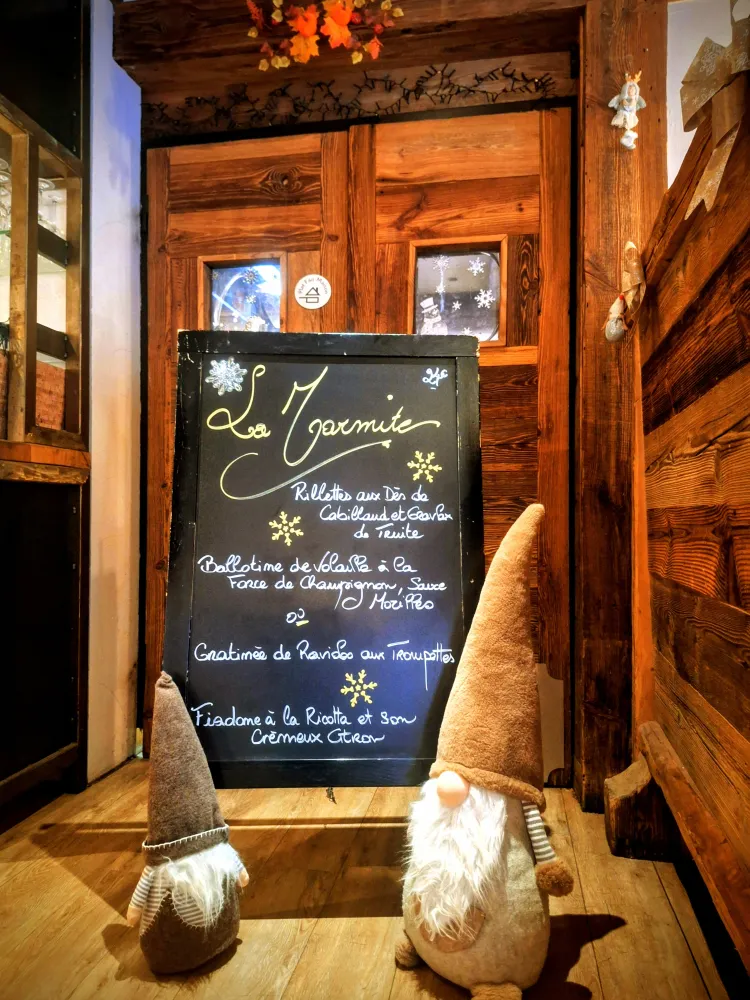 24€
La Marmite
Rillettes aux Dès de
Cabillaud et Gravlax
de Truite
Ballotine de Volaille à la
Farce de Champignon, Sauce
Morilles
ou
Gratinée de Ravioles aux Trompettes
Fiadone à la Ricotta et son
Crèmeux Citron